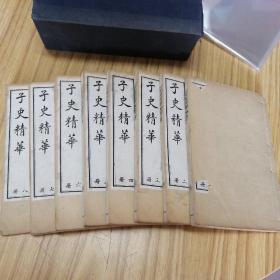 子史精華
八冊
子史精華
七冊
子史精華
六冊
子史精華
冊
子史精華
四冊
子史精華
三冊
子史精華
二冊